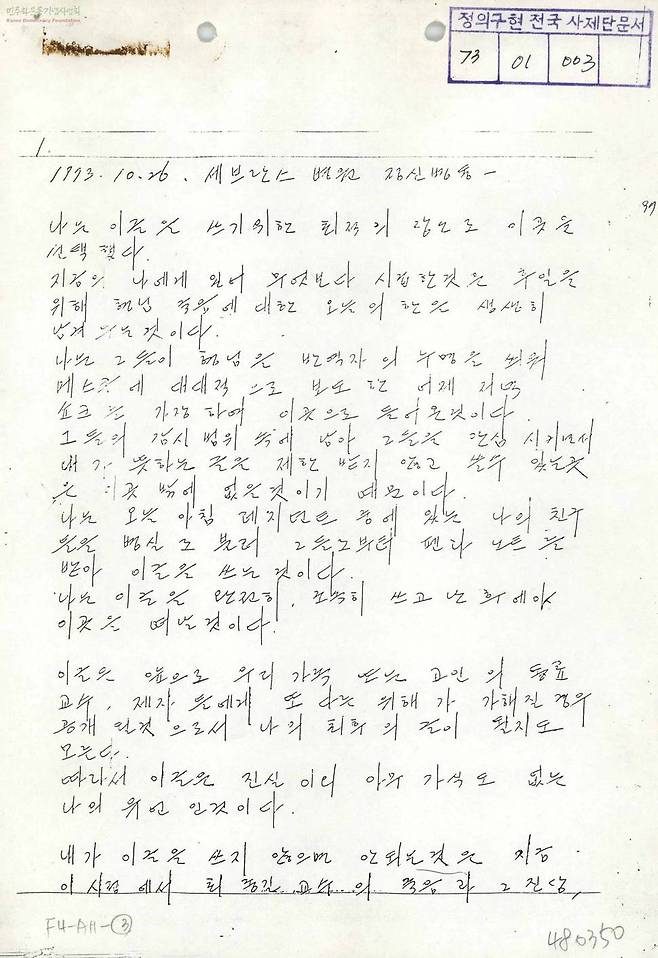 민주화운동기념사업회
Korea Democracy Foundation
정의구현 전국 사제단문서
73 01 003
1.
1973. 10. 26. 세브란스 병원 정신병동 -
나는 이글을 쓰기위한 최적의 장소로 이곳을
선택했다.
지금의 나에게 있어 무엇보다 시급한것은 후일을
위해 형님 죽음에 대한 오늘의 한을 생생히
남겨 두는것이다.
나는 그들이 형님을 반역자의 누명을 씌워
매스컴에 대대적으로 보도한 어제 저녁
쇼크를 가장하여 이곳으로 들어온것이다.
그들의 감시 범위 속에 남아 그들을 안심 시키면서
내가 뜻하는 글을 제한 받지 않고 쓸수 있는곳
은 이곳 밖에 없을것이기 때문이다.
나는 오늘 아침 레지던트 중에 있는 나의 친구
들을 병실로 불러 그들로부터 펜과 노트를
받아 이글을 쓰는것이다.
나는 이글을 완전히, 조속히 쓰고 난 후에야
이곳을 떠날것이다.
이글은 앞으로 우리 가족 또는 고인의 동료
교수, 제자 들에게 또 다른 위해가 가해진 경우
공개 될것으로서 나의 최후의 글이 될지도
모른다.
따라서 이글은 진실 이외 아무 가식도 없는
나의 유언 인것이다.
내가 이글을 쓰지 않으면 안되는것은 지금
이 시점에서 최종길 교수의 죽음과 그 진상,
F4-A11-③
480350